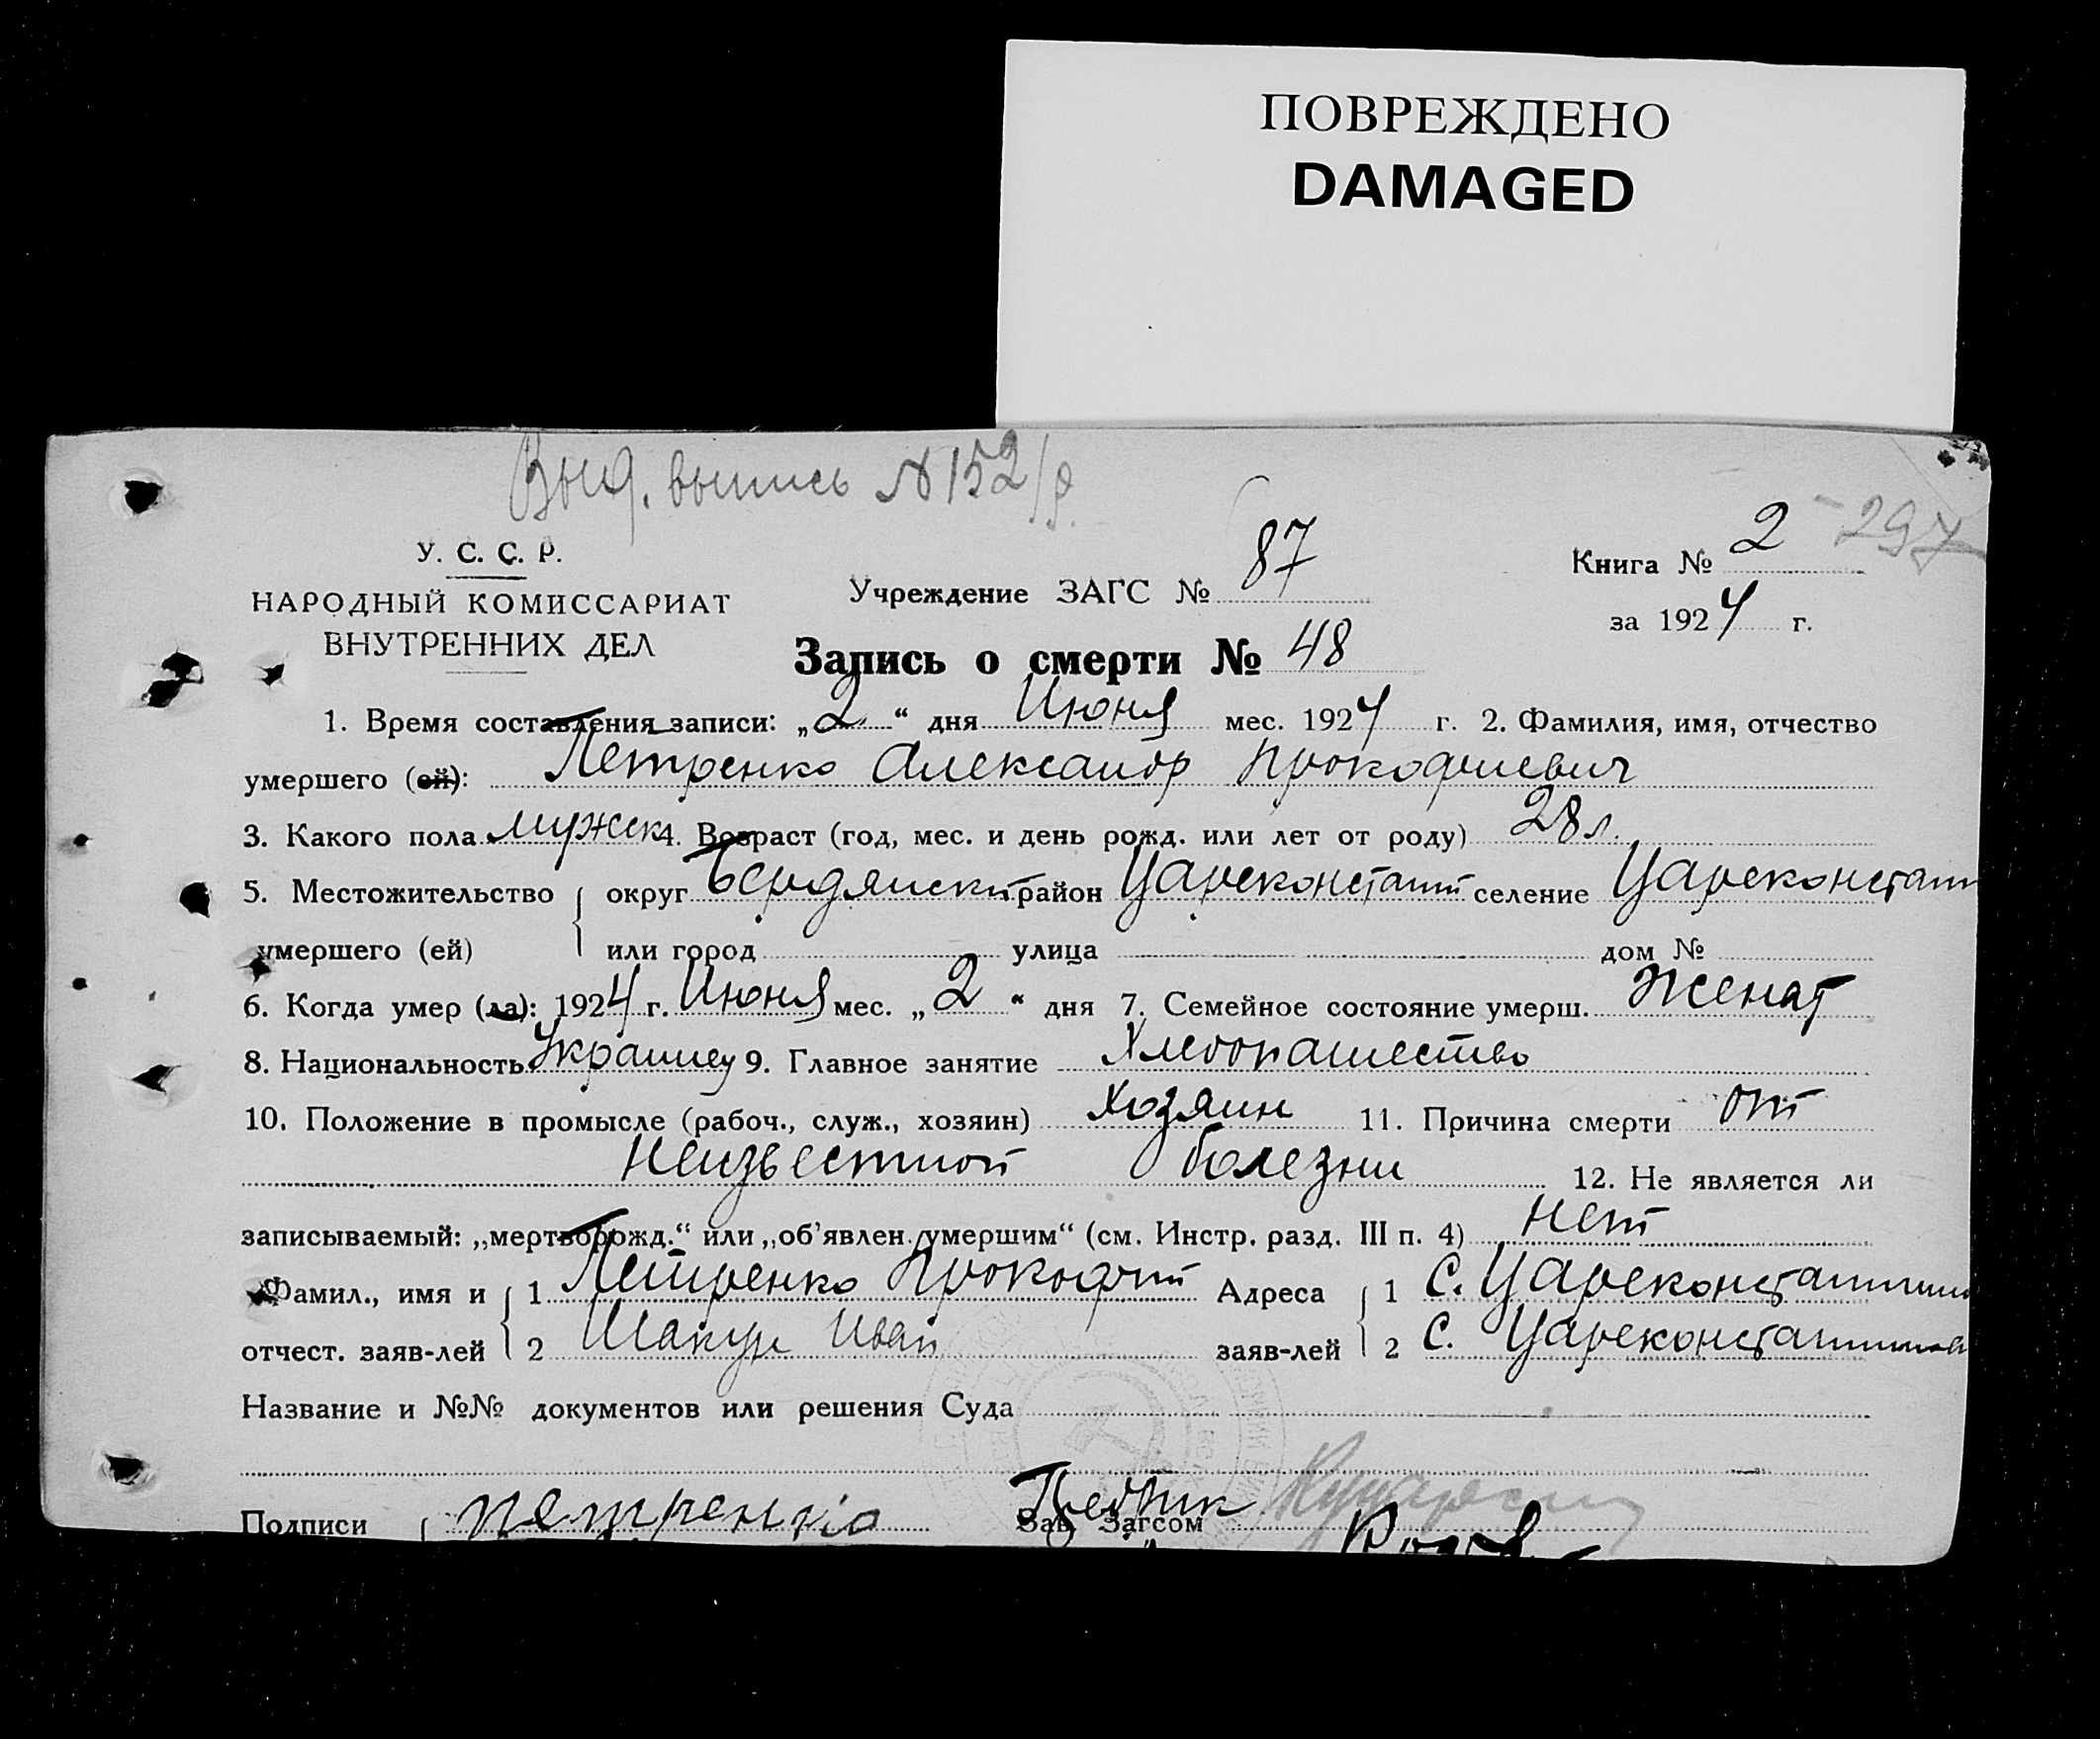 ПОВРЕЖДЕНО
DAMAGED
Выд. выпись №152/р.
У. С. С. Р.
НАРОДНЫЙ КОМИССАРИАТ
ВНУТРЕННИХ ДЕЛ
Учреждение ЗАГС № 87
Книга № 2 297
за 1924 г.
Запись о смерти № 48
1. Время составления записи: „2“ дня Июня мес. 1924 г. 2. Фамилия, имя, отчество
умершего (ей): Петренко Александр Прокофиевич
3. Какого пола мужск 4. Возраст (год, мес. и день рожд. или лет от роду) 28 л.
5. Местожительство округ Бердянский район Цареконстант селение Цареконстант
умершего (ей) или город улица дом №
6. Когда умер (ла): 1924 г. Июня мес. „2“ дня 7. Семейное состояние умерш. Женат
8. Национальность Украинец 9. Главное занятие Хлебопашество
10. Положение в промысле (рабоч., служ., хозяин) Хозяин 11. Причина смерти от
неизвестной болезни 12. Не является ли
записываемый: „мертворожд.“ или „об’явлен умершим“ (см. Инстр. разд. III п. 4) Нет
Фамил., имя и 1 Петренко Прокофий Адреса 1 С. Цареконстантин
отчест. заяв-лей 2 Шакун Иван заяв-лей 2 С. Цареконстантинов
Название и №№ документов или решения Суда
Подписи Петренко Зав. Загсом